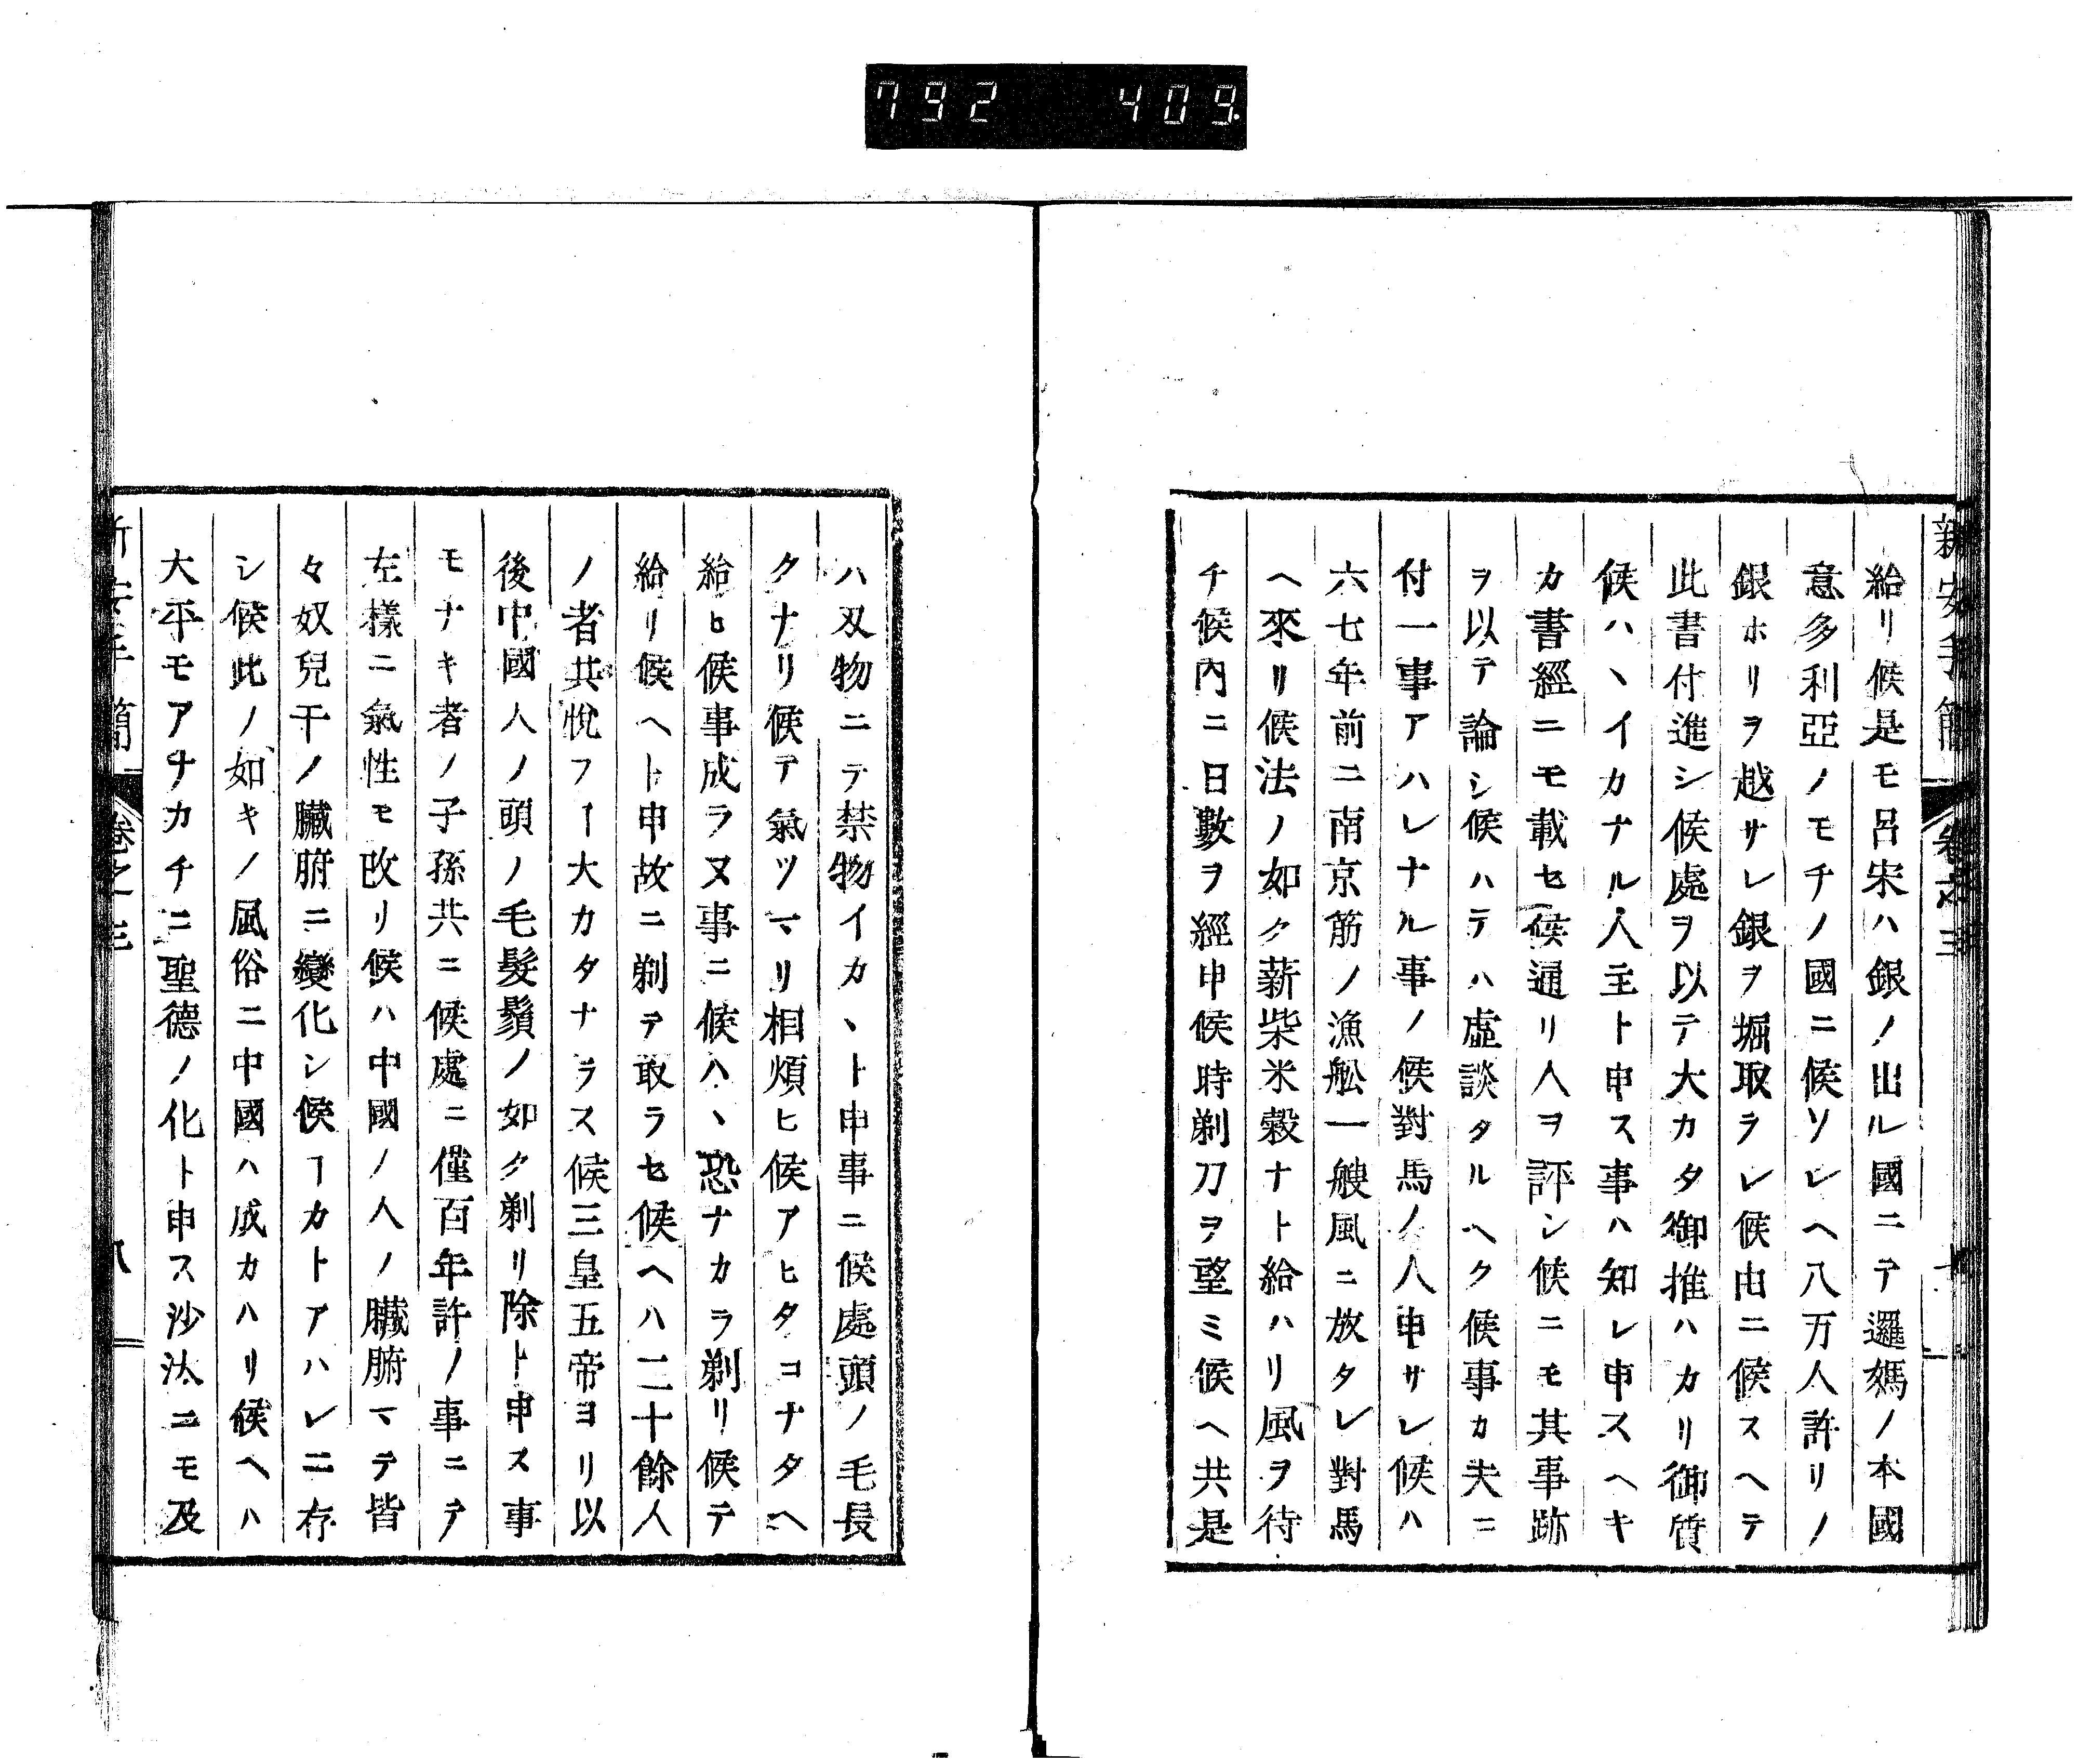 792 409
新安手簡 卷之三
給リ候是モ呂宋ハ銀ノ出ル國ニテ邏媽ノ本國
意多利亞ノモチノ國ニ候ソレヘ八万人許リノ
銀ホリヲ越サレ銀ヲ堀取ラレ候由ニ候スヘテ
此書付進シ候處ヲ以テ大カタ御推ハカリ御質
候ハヽイカナル人主ト申ス事ハ知レ申スヘキ
カ書經ニモ載セ候通リ人ヲ評シ候ニモ其事跡
ヲ以テ論シ候ハテハ虛談タルヘク候事カ夫ニ
付一事アハレナル事ノ候對馬ノ人申サレ候ハ
六七年前ニ南京筋ノ漁舩一艘風ニ放タレ對馬
ヘ來リ候法ノ如ク薪柴米穀ナト給ハリ風ヲ待
チ候內ニ日數ヲ經申候時剃刀ヲ望ミ候ヘ共是
ハ刄物ニテ禁物イカヽト申事ニ候處頭ノ毛長
クナリ候テ氣ツマリ相煩ヒ候アヒタコナタヘ
給ヒ候事成ラヌ事ニ候ハヽ恐ナカラ剃リ候テ
給リ候ヘト申故ニ剃テ取ラセ候ヘハ二十餘人
ノ者共悅フヿ大カタナラス候三皇五帝ヨリ以
後中國人ノ頭ノ毛髮鬚ノ如ク剃リ除ト申ス事
モナキ者ノ子孫共ニ候處ニ僅百年許ノ事ニテ
左樣ニ氣性モ改リ候ハ中國ノ人ノ臟腑マテ皆
々奴兒干ノ臟腑ニ變化シ候ヿカトアハレニ存
シ候此ノ如キノ風俗ニ中國ハ成カハリ候ヘハ
大平モアナカチニ聖德ノ化ト申ス沙汰ニモ及
新安手簡 卷之三 八